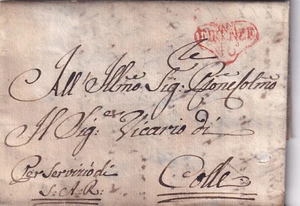 FIRENZE
All' Illmo: Sig: Pne Colmo
Il Sig:re Vicario di
Per Servizio di
S: A: R:
Colle